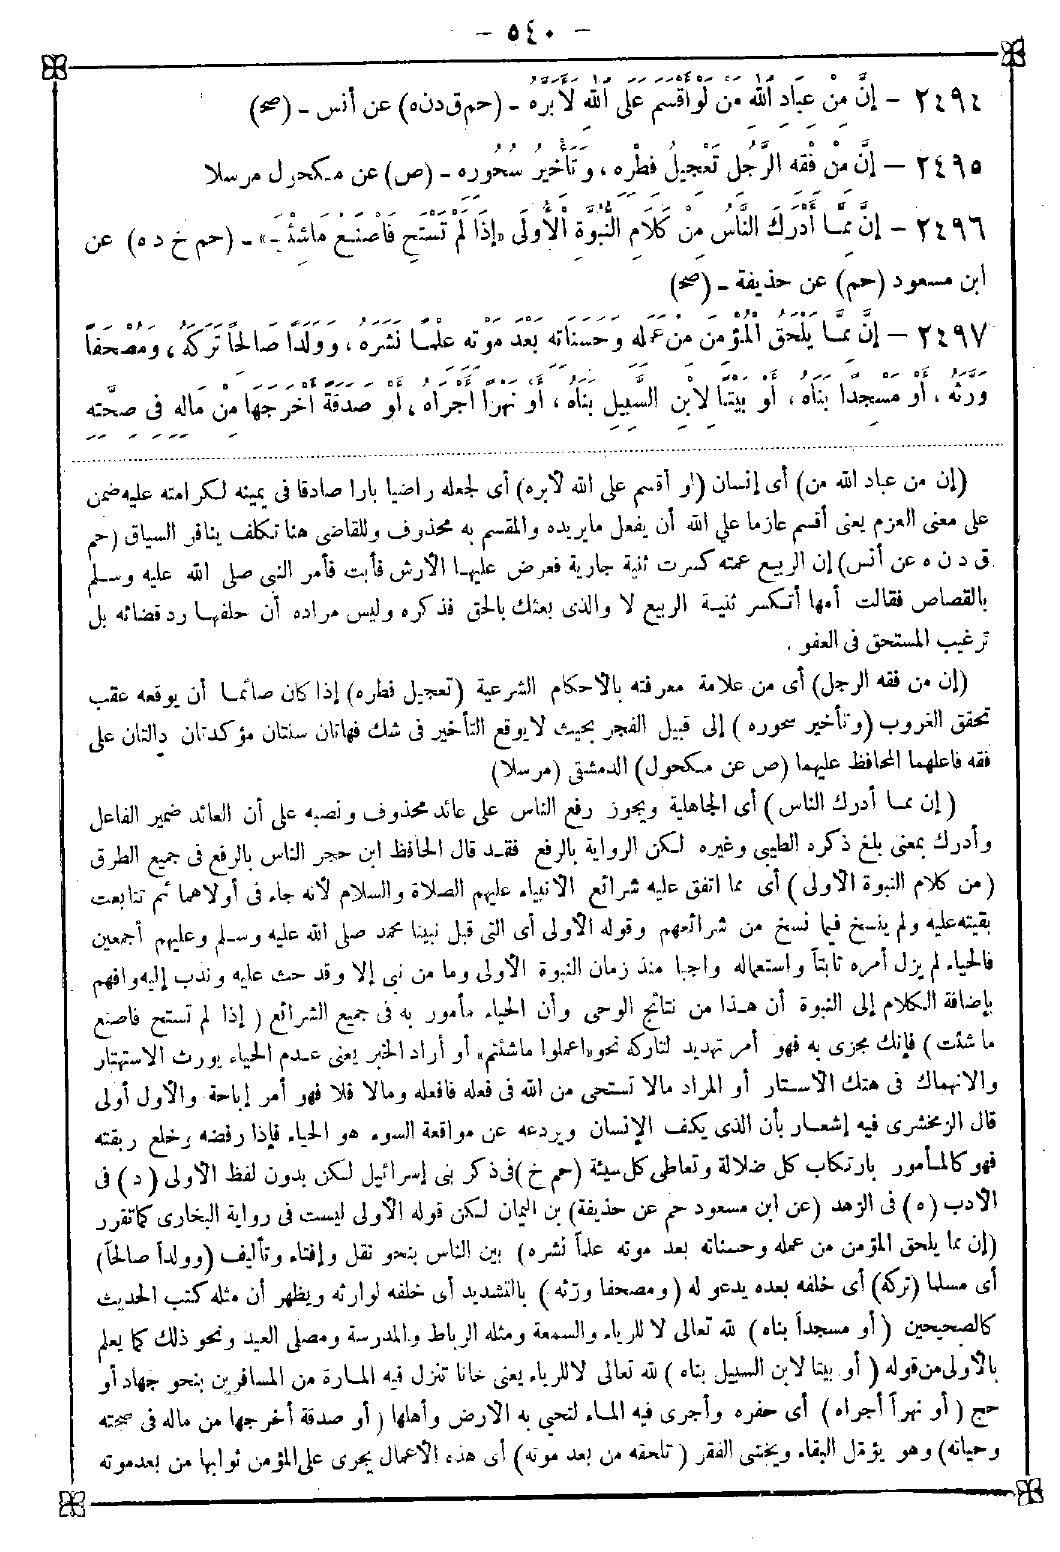 - ٥٤٠ -
٢٤٩٤ - إِنَّ مِنْ عِبَادِ اللّٰهِ مَنْ لَوْ أَقْسَمَ عَلَى اللّٰهِ لَأَبَرَّهُ - (حم ق د ن ه) عن أنس - (صح)
٢٤٩٥ - إِنَّ مِنْ فِقْهِ الرَّجُلِ تَعْجِيلُ فِطْرِهِ ، وَتَأْخِيرُ سُحُورِهِ - (ص) عن مكحول مرسلا
٢٤٩٦ - إِنَّ مِمَّا أَدْرَكَ النَّاسُ مِنْ كَلَامِ النُّبُوَّةِ الْأُولَى «إِذَا لَمْ تَسْتَحِ فَاصْنَعْ مَا شِئْتَ» - (حم خ د ه) عن
ابن مسعود (حم) عن حذيفة - (صح)
٢٤٩٧ - إِنَّ مِمَّا يَلْحَقُ الْمُؤْمِنَ مِنْ عَمَلِهِ وَحَسَنَاتِهِ بَعْدَ مَوْتِهِ عِلْمًا نَشَرَهُ ، وَوَلَدًا صَالِحًا تَرَكَهُ ، وَمُصْحَفًا
وَرَّثَهُ ، أَوْ مَسْجِدًا بَنَاهُ ، أَوْ بَيْتًا لِابْنِ السَّبِيلِ بَنَاهُ ، أَوْ نَهْرًا أَجْرَاهُ ، أَوْ صَدَقَةً أَخْرَجَهَا مِنْ مَالِهِ فِي صِحَّتِهِ
(إن من عباد الله من) أى إنسان (لو أقسم على الله لأبره) أى لجعله راضيا بارا صادقا فى يمينه لكرامته عليه ضمن
على معنى العزم يعنى أقسم عازما على الله أن يفعل ما يريده والمقسم به محذوف وللقاضى هنا تكلف ينافر السياق (حم
ق د ن ه عن أنس) إن الربيع عمته كسرت ثنية جارية فعرض عليها الأرش فأبت فأمر النبى صلى الله عليه وسلم
بالقصاص فقالت أمها أتكسر ثنية الربيع لا والذى بعثك بالحق فذكره وليس مراده أن حلفها رد قضائه بل
ترغيب المستحق فى العفو .
(إن من فقه الرجل) أى من علامة معرفته بالأحكام الشرعية (تعجيل فطره) إذا كان صائما أن يوقعه عقب
تحقق الغروب (وتأخير سحوره) إلى قبيل الفجر بحيث لا يوقع التأخير فى شك فهاتان سنتان مؤكدتان دالتان على
فقه فاعلهما المحافظ عليهما (ص عن مكحول) الدمشقى (مرسلا)
(إن مما أدرك الناس) أى الجاهلية ويجوز رفع الناس على عائد محذوف ونصبه على أن العائد ضمير الفاعل
وأدرك بمعنى بلغ ذكره الطيبى وغيره لكن الرواية بالرفع فقد قال الحافظ ابن حجر الناس بالرفع فى جميع الطرق
(من كلام النبوة الأولى) أى مما اتفق عليه شرائع الأنبياء عليهم الصلاة والسلام لأنه جاء فى أولاهما ثم تتابعت
بقيته عليه ولم ينسخ فيما نسخ من شرائعهم وقوله الأولى أى التى قبل نبينا محمد صلى الله عليه وسلم وعليهم أجمعين
فالحياء لم يزل أمره ثابتاً واستعماله واجبا منذ زمان النبوة الأولى وما من نبى إلا وقد حث عليه وندب إليه وافهم
بإضافة الكلام إلى النبوة أن هذا من نتائج الوحى وأن الحياء مأمور به فى جميع الشرائع (إذا لم تستح فاصنع
ما شئت) فإنك مجزى به فهو أمر تهديد لتاركه نحو «اعملوا ما شئتم» أو أراد الخبر يعنى عدم الحياء يورث الاستهتار
والانهماك فى هتك الأستار أو المراد مالا تستحى من الله فى فعله فافعله ومالا فلا فهو أمر إباحة والأول أولى
قال الزمخشرى فيه إشعار بأن الذى يكف الإنسان ويردعه عن مواقعة السوء هو الحياء فإذا رفضه وخلع ربقته
فهو كالمأمور بارتكاب كل ضلالة وتعاطى كل سيئة (حم خ) فى ذكر بنى إسرائيل لكن بدون لفظ الأولى (د) فى
الأدب (ه) فى الزهد (عن ابن مسعود حم عن حذيفة) بن اليمان لكن قوله الأولى ليست فى رواية البخارى كما تقرر
(إن مما يلحق المؤمن من عمله وحسناته بعد موته علماً نشره) بين الناس بنحو نقل وإفتاء وتأليف (وولداً صالحاً)
أى مسلما (تركه) أى خلفه بعده يدعو له (ومصحفا ورثه) بالتشديد أى خلفه لوارثه ويظهر أن مثله كتب الحديث
كالصحيحين (أو مسجداً بناه) لله تعالى لا للرياء والسمعة ومثله الرباط والمدرسة ومصلى العيد ونحو ذلك كما يعلم
بالأولى من قوله (أو بيتا لابن السبيل بناه) لله تعالى لا للرياء يعنى خانا تنزل فيه المارة من المسافرين بنحو جهاد أو
حج (أو نهراً أجراه) أى حفره وأجرى فيه الماء لتحيى به الأرض وأهلها (أو صدقة أخرجها من ماله فى صحته
وحياته) وهو يؤمل البقاء ويخشى الفقر (تلحقه من بعد موته) أى هذه الأعمال يجرى على المؤمن ثوابها من بعد موته